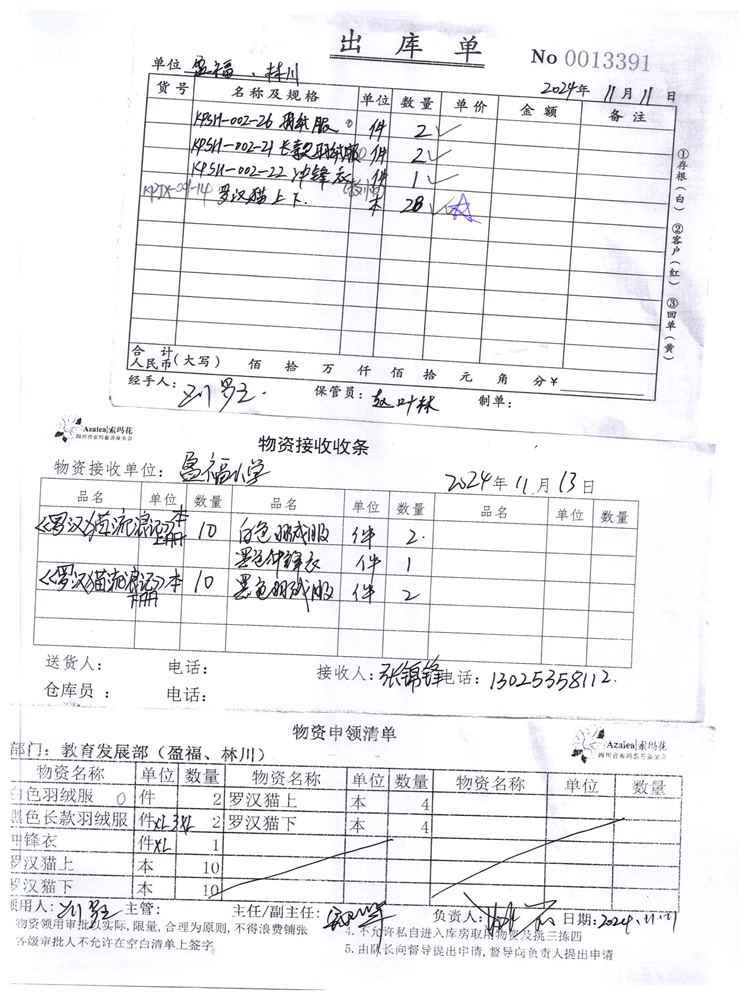 出库单
No 0013391
单位 盈福、林川
2024年 11月11日
货号 名称及规格 单位 数量 单价 金额 备注
KPSH-002-26 羽绒服 件 2
KPSH-002-21 长款羽绒服 件 2
KPSH-002-22 冲锋衣 件 1
罗汉猫上下 本 28
①存根(白) ②客户(红) ③回单(黄)
合计
人民币(大写) 佰 拾 万 仟 佰 拾 元 角 分 ¥
经手人: 保管员: 赵叶林 制单:
Azalea|索玛花
物资接收收条
物资接收单位: 盈福小学 2024年11月13日
品名 单位 数量 品名 单位 数量 品名 单位 数量
《罗汉猫流浪记》上册 本 10 白色羽绒服 件 2
黑色冲锋衣 件 1
《罗汉猫流浪记》下册 本 10 黑色羽绒服 件 2
送货人: 电话: 接收人: 张锦锋 电话: 13025358112
仓库员: 电话:
物资申领清单
Azalea|索玛花
部门: 教育发展部(盈福、林川)
物资名称 单位 数量 物资名称 单位 数量 物资名称 单位 数量
白色羽绒服 件 2 罗汉猫上 本 4
黑色长款羽绒服 件 XL 3XL 2 罗汉猫下 本 4
冲锋衣 件 XL 1
罗汉猫上 本 10
罗汉猫下 本 10
领用人: 主管: 主任/副主任: 负责人: 日期: 2024.11.11
物资领用审批以实际,限量,合理为原则,不得浪费铺张
各级审批人不允许在空白清单上签字
4.不允许私自进入库房取用物资及挑三拣四
5.由队长向督导提出申请,督导向负责人提出申请